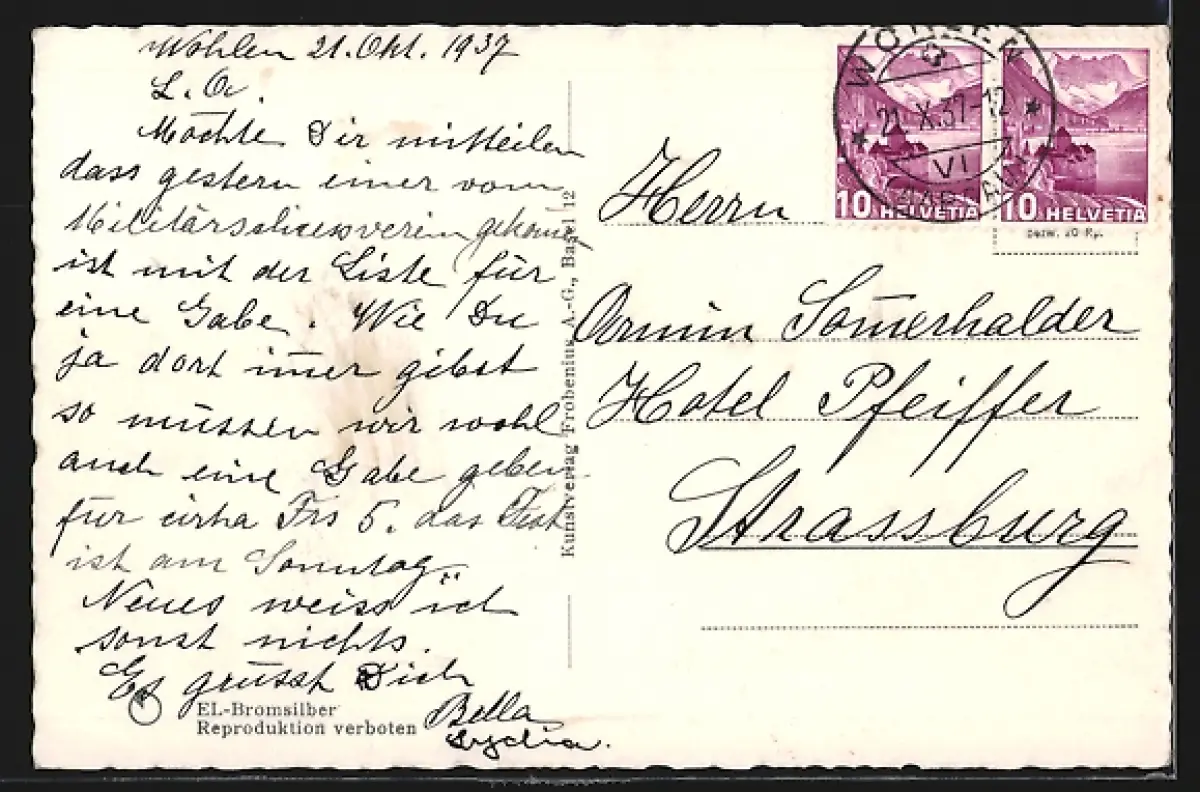 Wohlen 21. Okt. 1937
L. A.
Möchte Dir mitteilen
dass gestern einer vom
Militärschiessverein gekommen
ist mit der Liste für
eine Gabe. Wie Du
ja dort im̄er gibst
so müssen wir wohl
auch eine Gabe geben
für cirka Frs 5. das Fest
ist am Sonntag.
Neues weiss ich
sonst nichts.
Es grüsst Dich
Bella
Lydia.
EL-Bromsilber
Reproduktion verboten
Kunstverlag Frobenius A.-G., Basel 12
WOHLEN
21.X.37-12
VI
(AARGAU)
10 HELVETIA
10 HELVETIA
bezw. 20 Rp.
Herrn
Armin Som̄erhalder
Hotel Pfeiffer
Strassburg